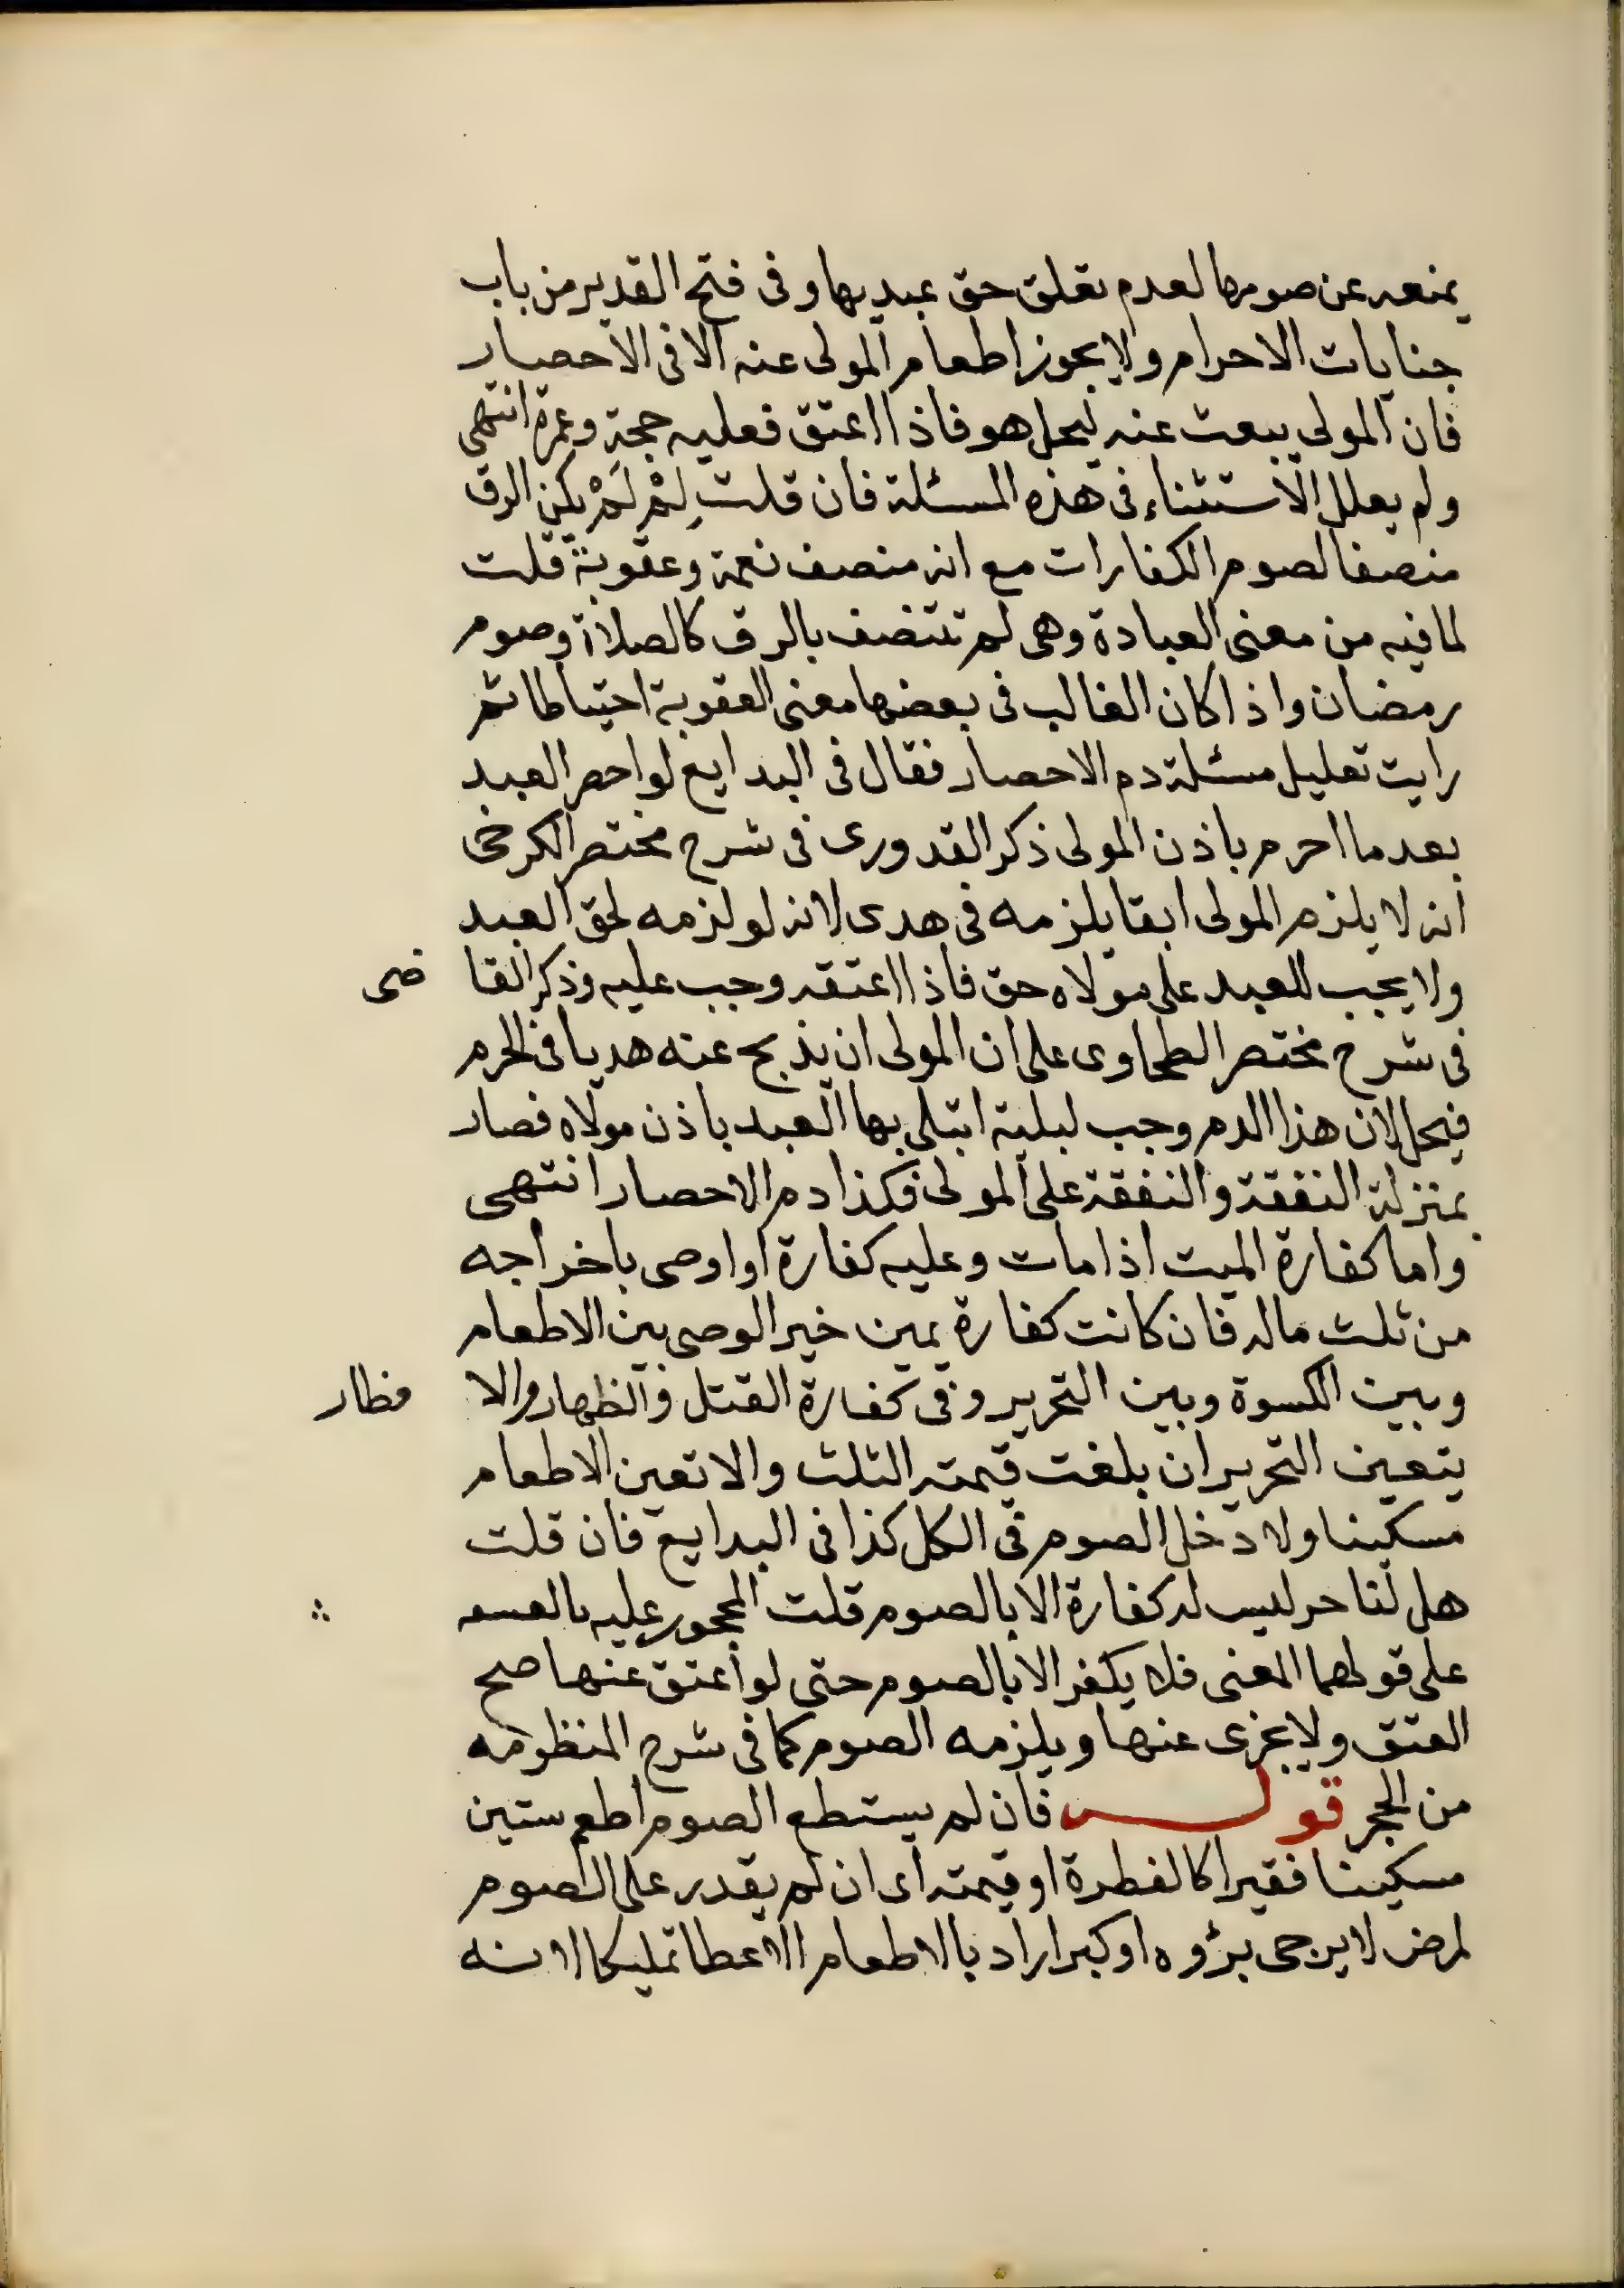 يمنعه عن صومها لعدم تعلق حق عبد بها وفى فتح القدير من باب
جنايات الاحرام ولا يجوز اطعام المولى عنه الا فى الاحصار
فان المولى يبعث عنه ليحل هو فاذا اعتق فعليه حجة وعمرة انتهى
ولم يعلل الاستثناء فى هذه المسئلة فان قلت لِمْ لَمْ يكن الرق
منصفا لصوم الكفارات مع انه منصف نعمة وعقوبة قلت
لما فيه من معنى العبادة وهى لم تتنصف بالرق كالصلاة وصوم
رمضان واذا كان الغالب فى بعضها معنى العقوبة احتياطا ثم
رايت تعليل مسئلة دم الاحصار فقال فى البدايع لو احصر العبد
بعد ما احرم باذن المولى ذكر القدورى فى شرح مختصر الكرخى
انه لا يلزم المولى ابقا يلزمه فى هدى لانه لو لزمه لحق العبد
ولا يجب للعبد على مولاه حق فاذا اعتقه وجب عليه وذكر القا ضى
فى شرح مختصر الطحاوى على ان المولى ان يذبح عنه هديا فى الحرم
فيحل لان هذا الدم وجب لبلية ابتلى بها العبد باذن مولاه فصار
بمنزلة النفقة والنفقة على المولى فكذا دم الاحصار انتهى
واما كفارة الميت اذا مات وعليه كفارة او اوصى باخراجه
من ثلث ماله فان كانت كفارة يمين خير الوصى بين الاطعام
وبين الكسوة وبين التحرير وفى كفارة القتل والظهار والا فطار
يتعين التحرير ان بلغت قيمته الثلث والا تعين الاطعام
مسكينا ولا دخل الصوم فى الكل كذا فى البدايع فان قلت
هل لنا حر ليس له كفارة الا بالصوم قلت المحجور عليه بالسفه
على قولهما المعنى فلا يكفر الا بالصوم حتى لو اعتق عنها صح
العتق ولا يجزى عنها ويلزمه الصوم كما فى شرح المنظومه
من الحجر قوله فان لم يستطع الصوم اطعم ستين
مسكينا فقيرا كالفطرة او قيمته اى ان لم يقدر على الصوم
لمرض لا يرجى برؤه او كبر اراد بالاطعام الاعطا تمليكا لانه